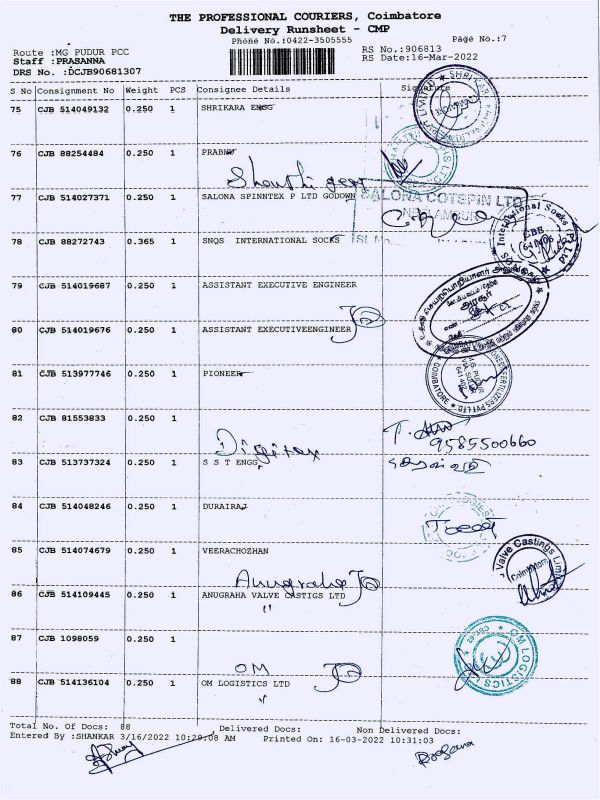 THE PROFESSIONAL COURIERS, Coimbatore
Delivery Runsheet - CMP
Phone No.:0422-3505555
Page No.:7
Route :MG PUDUR PCC
Staff :PRASANNA
DRS No. :DCJB90681307
RS No.:906813
RS Date:16-Mar-2022
S No Consignment No Weight PCS Consignee Details Signature
75 CJB 514049132 0.250 1 SHRIKARA ENGG
76 CJB 88254484 0.250 1 PRABHU
Shanthi gear
77 CJB 514027371 0.250 1 SALONA SPINNTEX P LTD GODOWN
SALONA COTSPIN LTD
78 CJB 88272743 0.365 1 SNQS INTERNATIONAL SOCKS
International Socks (P) Ltd
79 CJB 514019687 0.250 1 ASSISTANT EXECUTIVE ENGINEER
80 CJB 514019676 0.250 1 ASSISTANT EXECUTIVEENGINEER
81 CJB 513977746 0.250 1 PIONEER
82 CJB 81553833 0.250 1
9585500660
Digitex
83 CJB 513737324 0.250 1 S S T ENGG
84 CJB 514048246 0.250 1 DURAIRAJ
85 CJB 514074679 0.250 1 VEERACHOZHAN
Valve Castings Limited
Coimbatore
Anugraha
86 CJB 514109445 0.250 1 ANUGRAHA VALVE CASTIGS LTD
87 CJB 1098059 0.250 1
OM
OM LOGISTICS LTD
88 CJB 514136104 0.250 1 OM LOGISTICS LTD
Total No. Of Docs: 88 Delivered Docs: Non Delivered Docs:
Entered By :SHANKAR 3/16/2022 10:29:08 AM Printed On: 16-03-2022 10:31:03